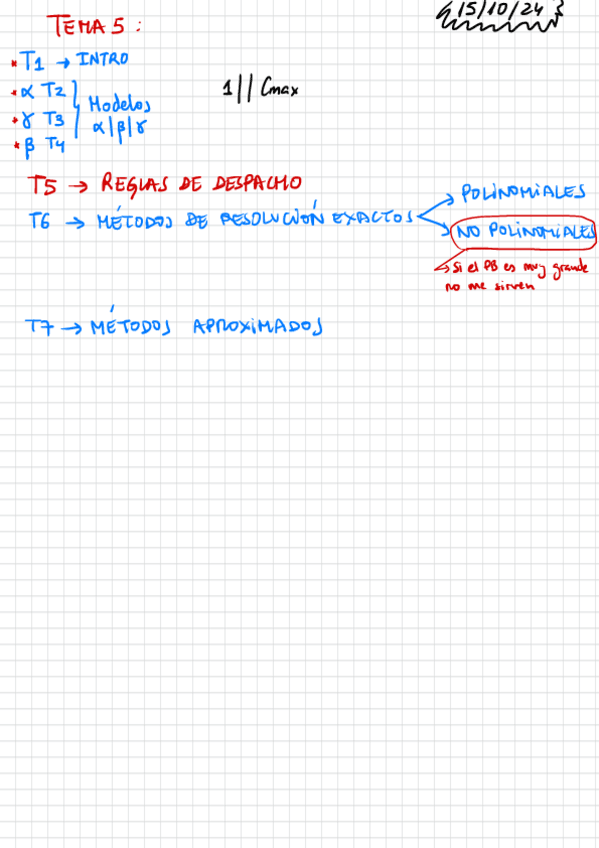 15/10/24
TEMA 5:
* T1 → INTRO
* α T2
* γ T3
* β T4
Modelos
α|β|γ
1||Cmax
T5 → REGLAS DE DESPACHO
T6 → MÉTODOS DE RESOLUCIÓN EXACTOS
POLINOMIALES
NO POLINOMIALES
→ Si el PB es muy grande
no me sirven
T7 → MÉTODOS APROXIMADOS